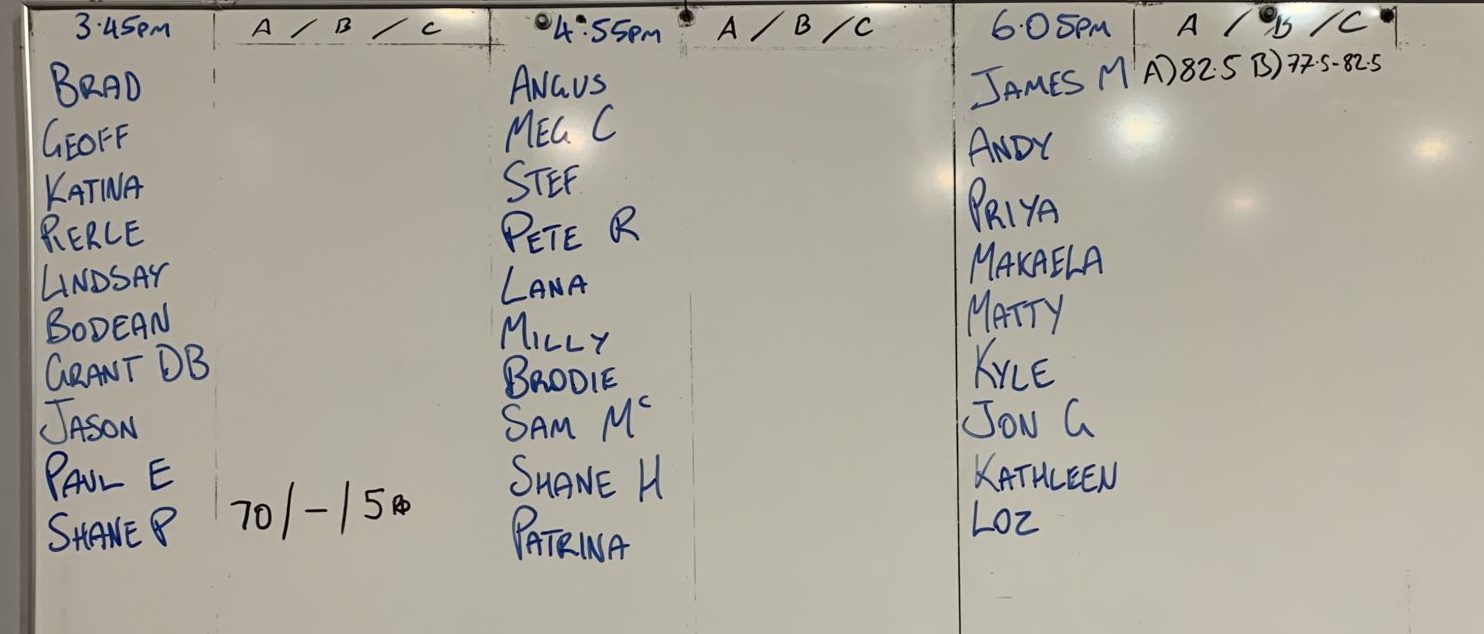 3.45PM A / B / C
BRAD
GEOFF
KATINA
PIERCE
LINDSAY
BODEAN
GRANT DB
JASON
PAUL E
SHANE P 70/-/5
4:55PM A / B / C
ANGUS
MEG C
STEF
PETE R
LANA
MILLY
BRODIE
SAM Mc
SHANE H
PATRINA
6.05PM A / B / C
JAMES M A)82.5 B)77.5-82.5
ANDY
PRIYA
MAKAELA
MATTY
KYLE
JON G
KATHLEEN
LOZ